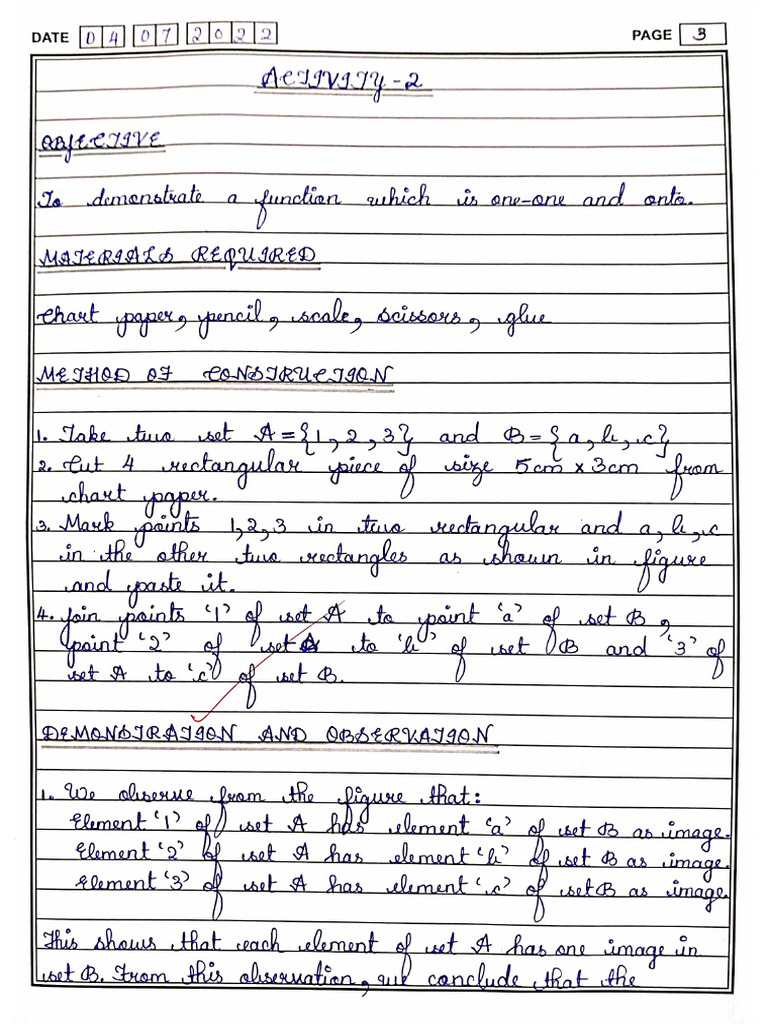 DATE 04 07 2022 PAGE 3
ACTIVITY-2
OBJECTIVE
To demonstrate a function which is one-one and onto.
MATERIALS REQUIRED
Chart paper, pencil, scale, scissors, glue
METHOD OF CONSTRUCTION
1. Take two set A={1, 2, 3} and B={a, b, c}
2. Cut 4 rectangular piece of size 5cm x 3cm from
chart paper.
3. Mark points 1,2,3 in two rectangular and a, b, c
in the other two rectangles as shown in figure
and paste it.
4. Join points '1' of set A to point 'a' of set B,
point '2' of set A to 'b' of set B and '3' of
set A to 'c' of set B.
DEMONSTRATION AND OBSERVATION
1. We observe from the figure that:
Element '1' of set A has element 'a' of set B as image.
Element '2' of set A has element 'b' of set B as image.
Element '3' of set A has element 'c' of set B as image
This shows that each element of set A has one image in
set B. From this observation, we conclude that the